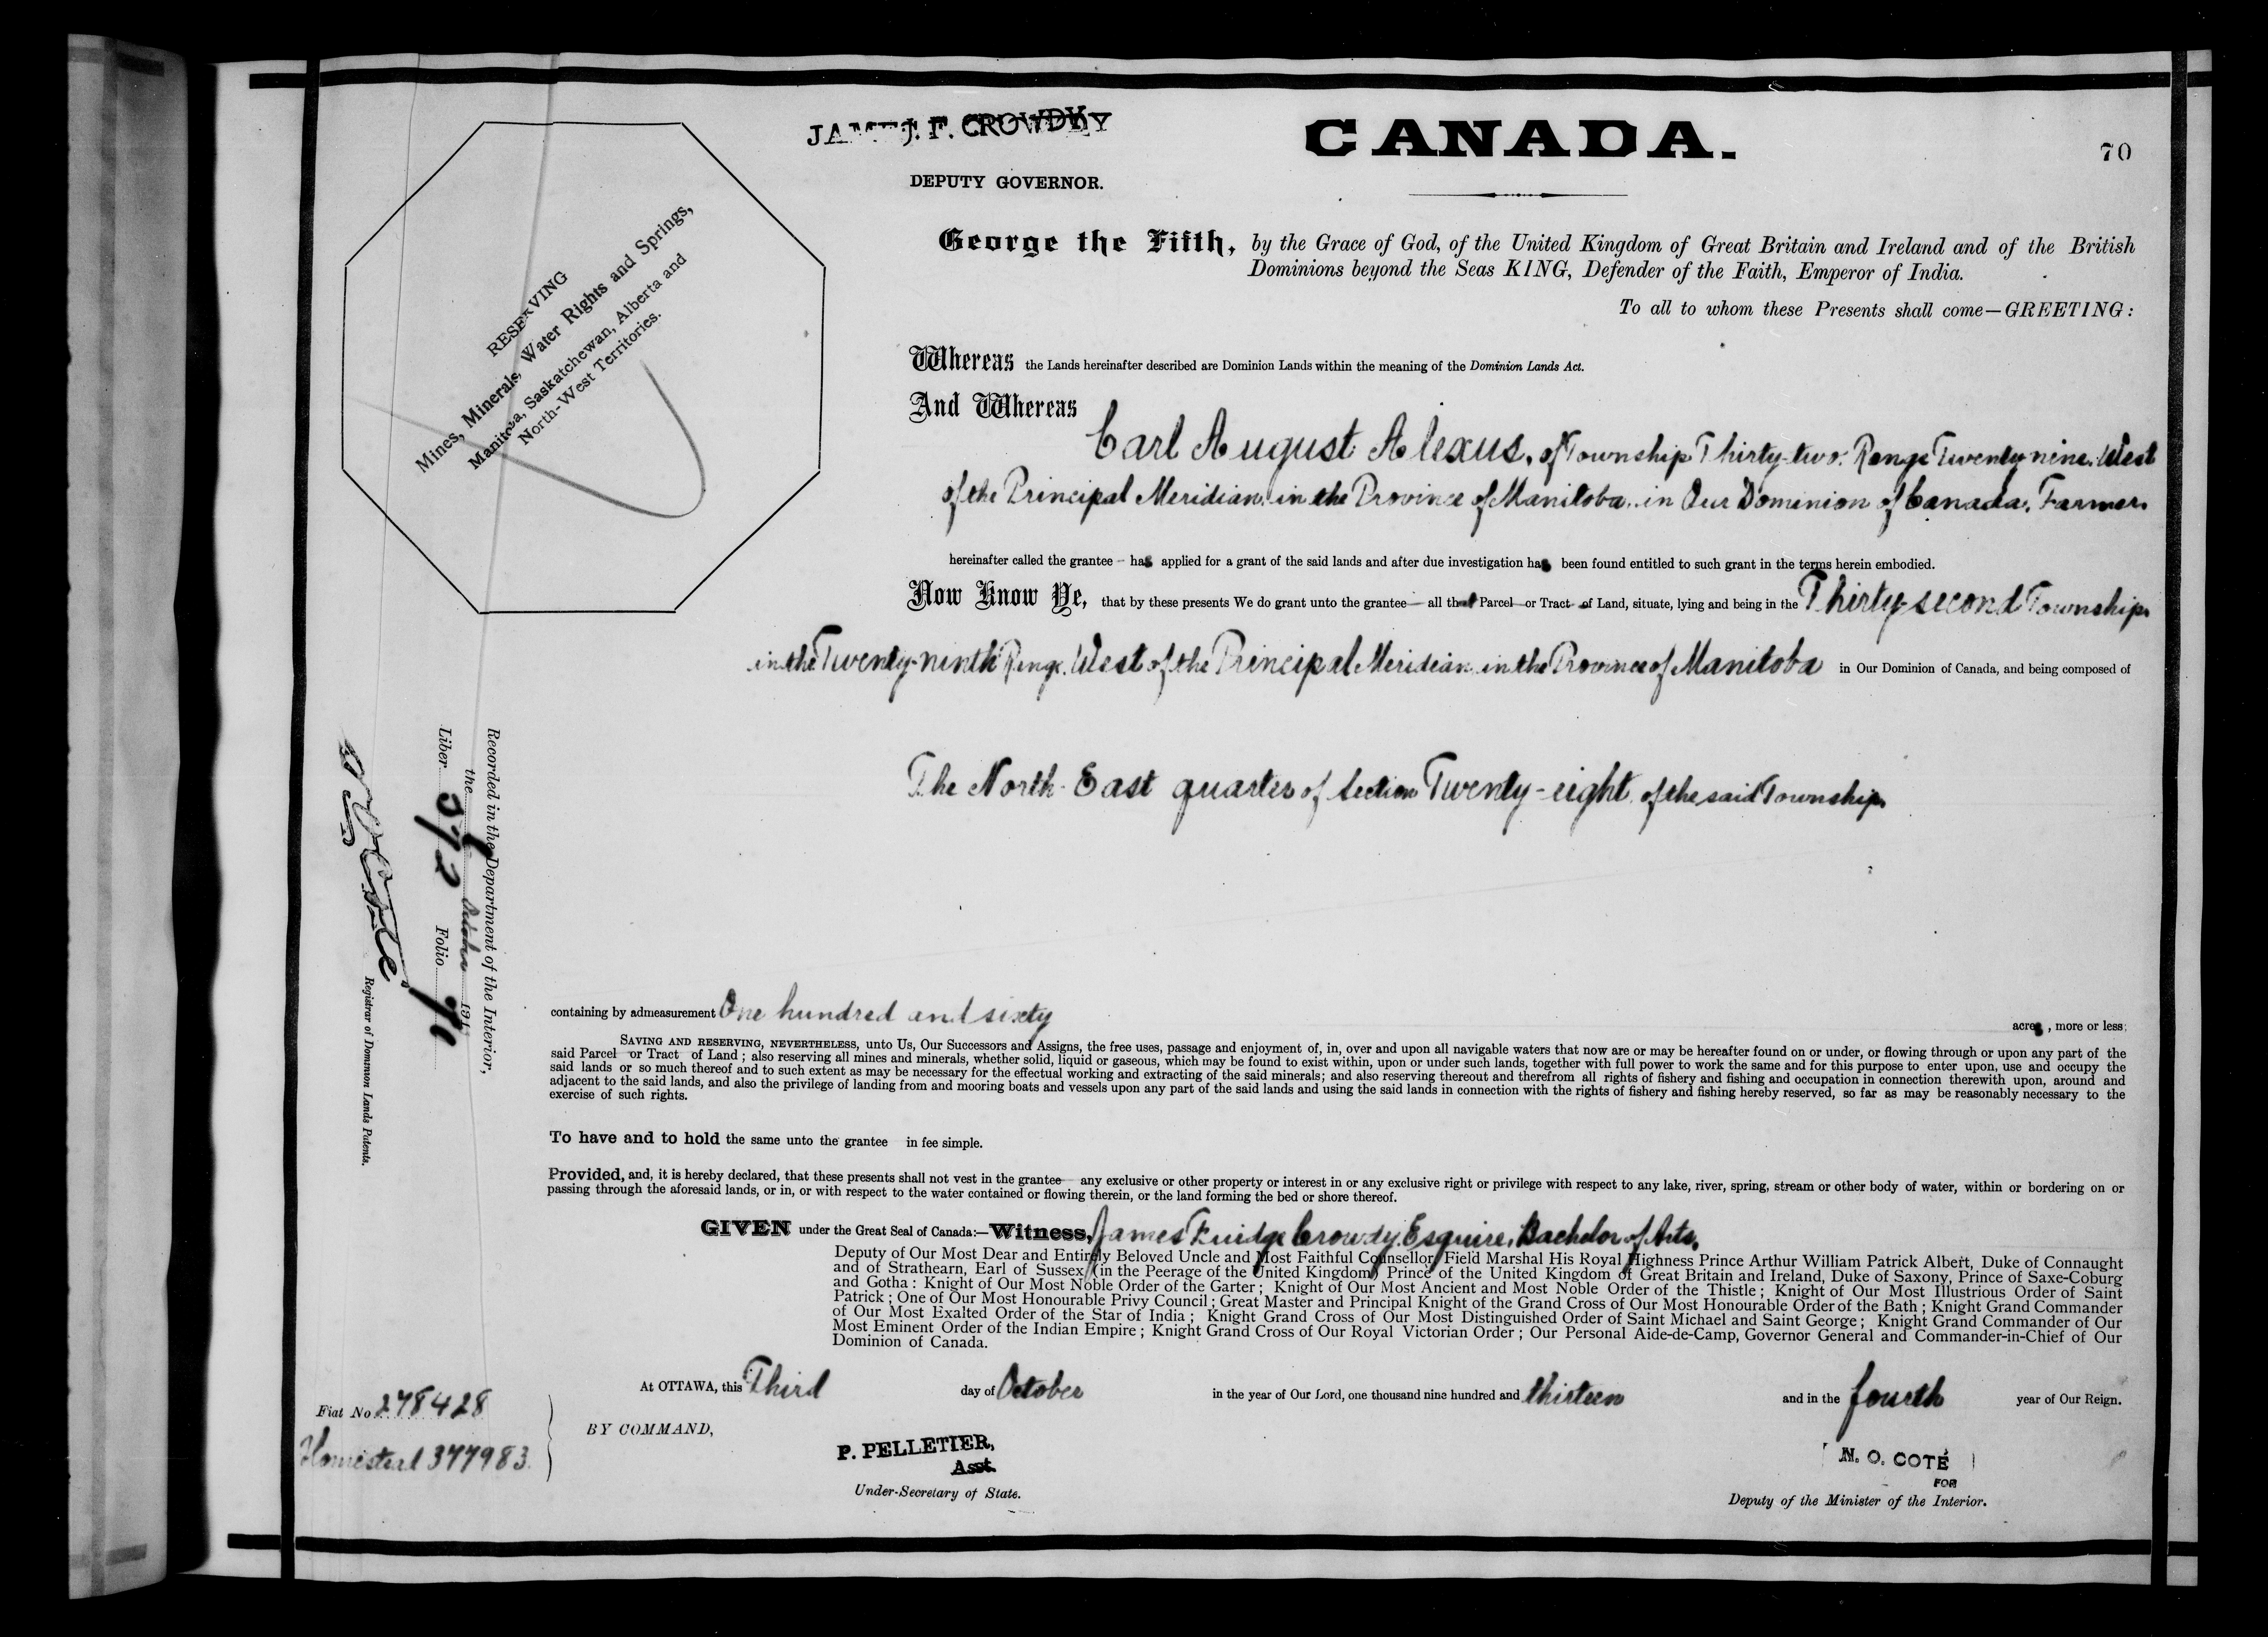 CANADA.
70
JAMES F. CROWDY
DEPUTY GOVERNOR.
RESERVING
Mines, Minerals, Water Rights and Springs,
Manitoba, Saskatchewan, Alberta and
North-West Territories.
George the Fifth, by the Grace of God, of the United Kingdom of Great Britain and Ireland and of the British
Dominions beyond the Seas KING, Defender of the Faith, Emperor of India.
To all to whom these Presents shall come—GREETING:
Whereas the Lands hereinafter described are Dominion Lands within the meaning of the Dominion Lands Act.
And Whereas
Carl August Alexus, of Township Thirty-two, Range Twenty-nine, West
of the Principal Meridian, in the Province of Manitoba, in Our Dominion of Canada, Farmer,
hereinafter called the grantee — has applied for a grant of the said lands and after due investigation has been found entitled to such grant in the terms herein embodied.
Now Know Ye, that by these presents We do grant unto the grantee — all that Parcel or Tract of Land, situate, lying and being in the Thirty-second Township,
in the Twenty-ninth Range, West of the Principal Meridian, in the Province of Manitoba in Our Dominion of Canada, and being composed of
The North-East quarter of Section Twenty-eight, of the said Township,
containing by admeasurement One hundred and sixty acres, more or less;
SAVING AND RESERVING, NEVERTHELESS, unto Us, Our Successors and Assigns, the free uses, passage and enjoyment of, in, over and upon all navigable waters that now are or may be hereafter found on or under, or flowing through or upon any part of the
said Parcel or Tract of Land; also reserving all mines and minerals, whether solid, liquid or gaseous, which may be found to exist within, upon or under such lands, together with full power to work the same and for this purpose to enter upon, use and occupy the
said lands or so much thereof and to such extent as may be necessary for the effectual working and extracting of the said minerals; and also reserving thereout and therefrom all rights of fishery and fishing and occupation in connection therewith upon, around and
adjacent to the said lands, and also the privilege of landing from and mooring boats and vessels upon any part of the said lands and using the said lands in connection with the rights of fishery and fishing hereby reserved, so far as may be reasonably necessary to the
exercise of such rights.
To have and to hold the same unto the grantee in fee simple.
Provided, and, it is hereby declared, that these presents shall not vest in the grantee any exclusive or other property or interest in or any exclusive right or privilege with respect to any lake, river, spring, stream or other body of water, within or bordering on or
passing through the aforesaid lands, or in, or with respect to the water contained or flowing therein, or the land forming the bed or shore thereof.
GIVEN under the Great Seal of Canada:—Witness, James Fuidge Crowdy, Esquire, Bachelor of Arts,
Deputy of Our Most Dear and Entirely Beloved Uncle and Most Faithful Counsellor, Field Marshal His Royal Highness Prince Arthur William Patrick Albert, Duke of Connaught
and of Strathearn, Earl of Sussex (in the Peerage of the United Kingdom) Prince of the United Kingdom of Great Britain and Ireland, Duke of Saxony, Prince of Saxe-Coburg
and Gotha: Knight of Our Most Noble Order of the Garter; Knight of Our Most Ancient and Most Noble Order of the Thistle; Knight of Our Most Illustrious Order of Saint
Patrick; One of Our Most Honourable Privy Council; Great Master and Principal Knight of the Grand Cross of Our Most Honourable Order of the Bath; Knight Grand Commander
of Our Most Exalted Order of the Star of India; Knight Grand Cross of Our Most Distinguished Order of Saint Michael and Saint George; Knight Grand Commander of Our
Most Eminent Order of the Indian Empire; Knight Grand Cross of Our Royal Victorian Order; Our Personal Aide-de-Camp, Governor General and Commander-in-Chief of Our
Dominion of Canada.
At OTTAWA, this Third day of October in the year of Our Lord, one thousand nine hundred and thirteen and in the fourth year of Our Reign.
BY COMMAND,
P. PELLETIER,
Asst.
Under-Secretary of State.
N. O. COTÉ
FOR
Deputy of the Minister of the Interior.
Fiat No 278428
Homestead 377983.
Recorded in the Department of the Interior,
the October 1913
Liber 372 Folio 70
N O Coté
Registrar of Dominion Lands Patents.